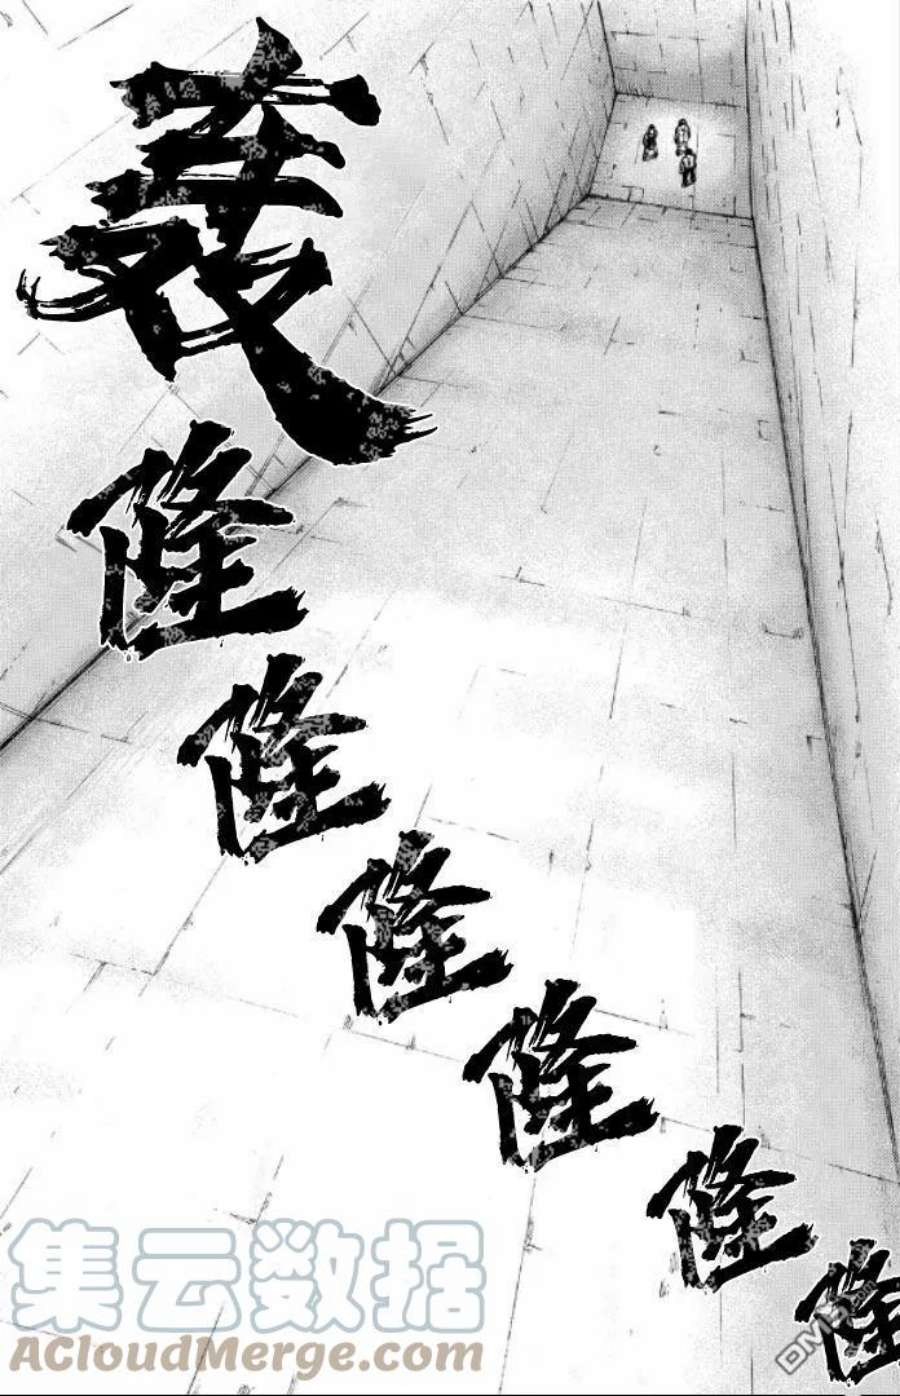 轰
隆
隆
隆
隆
隆
隆
集云数据
ACloudMerge.com